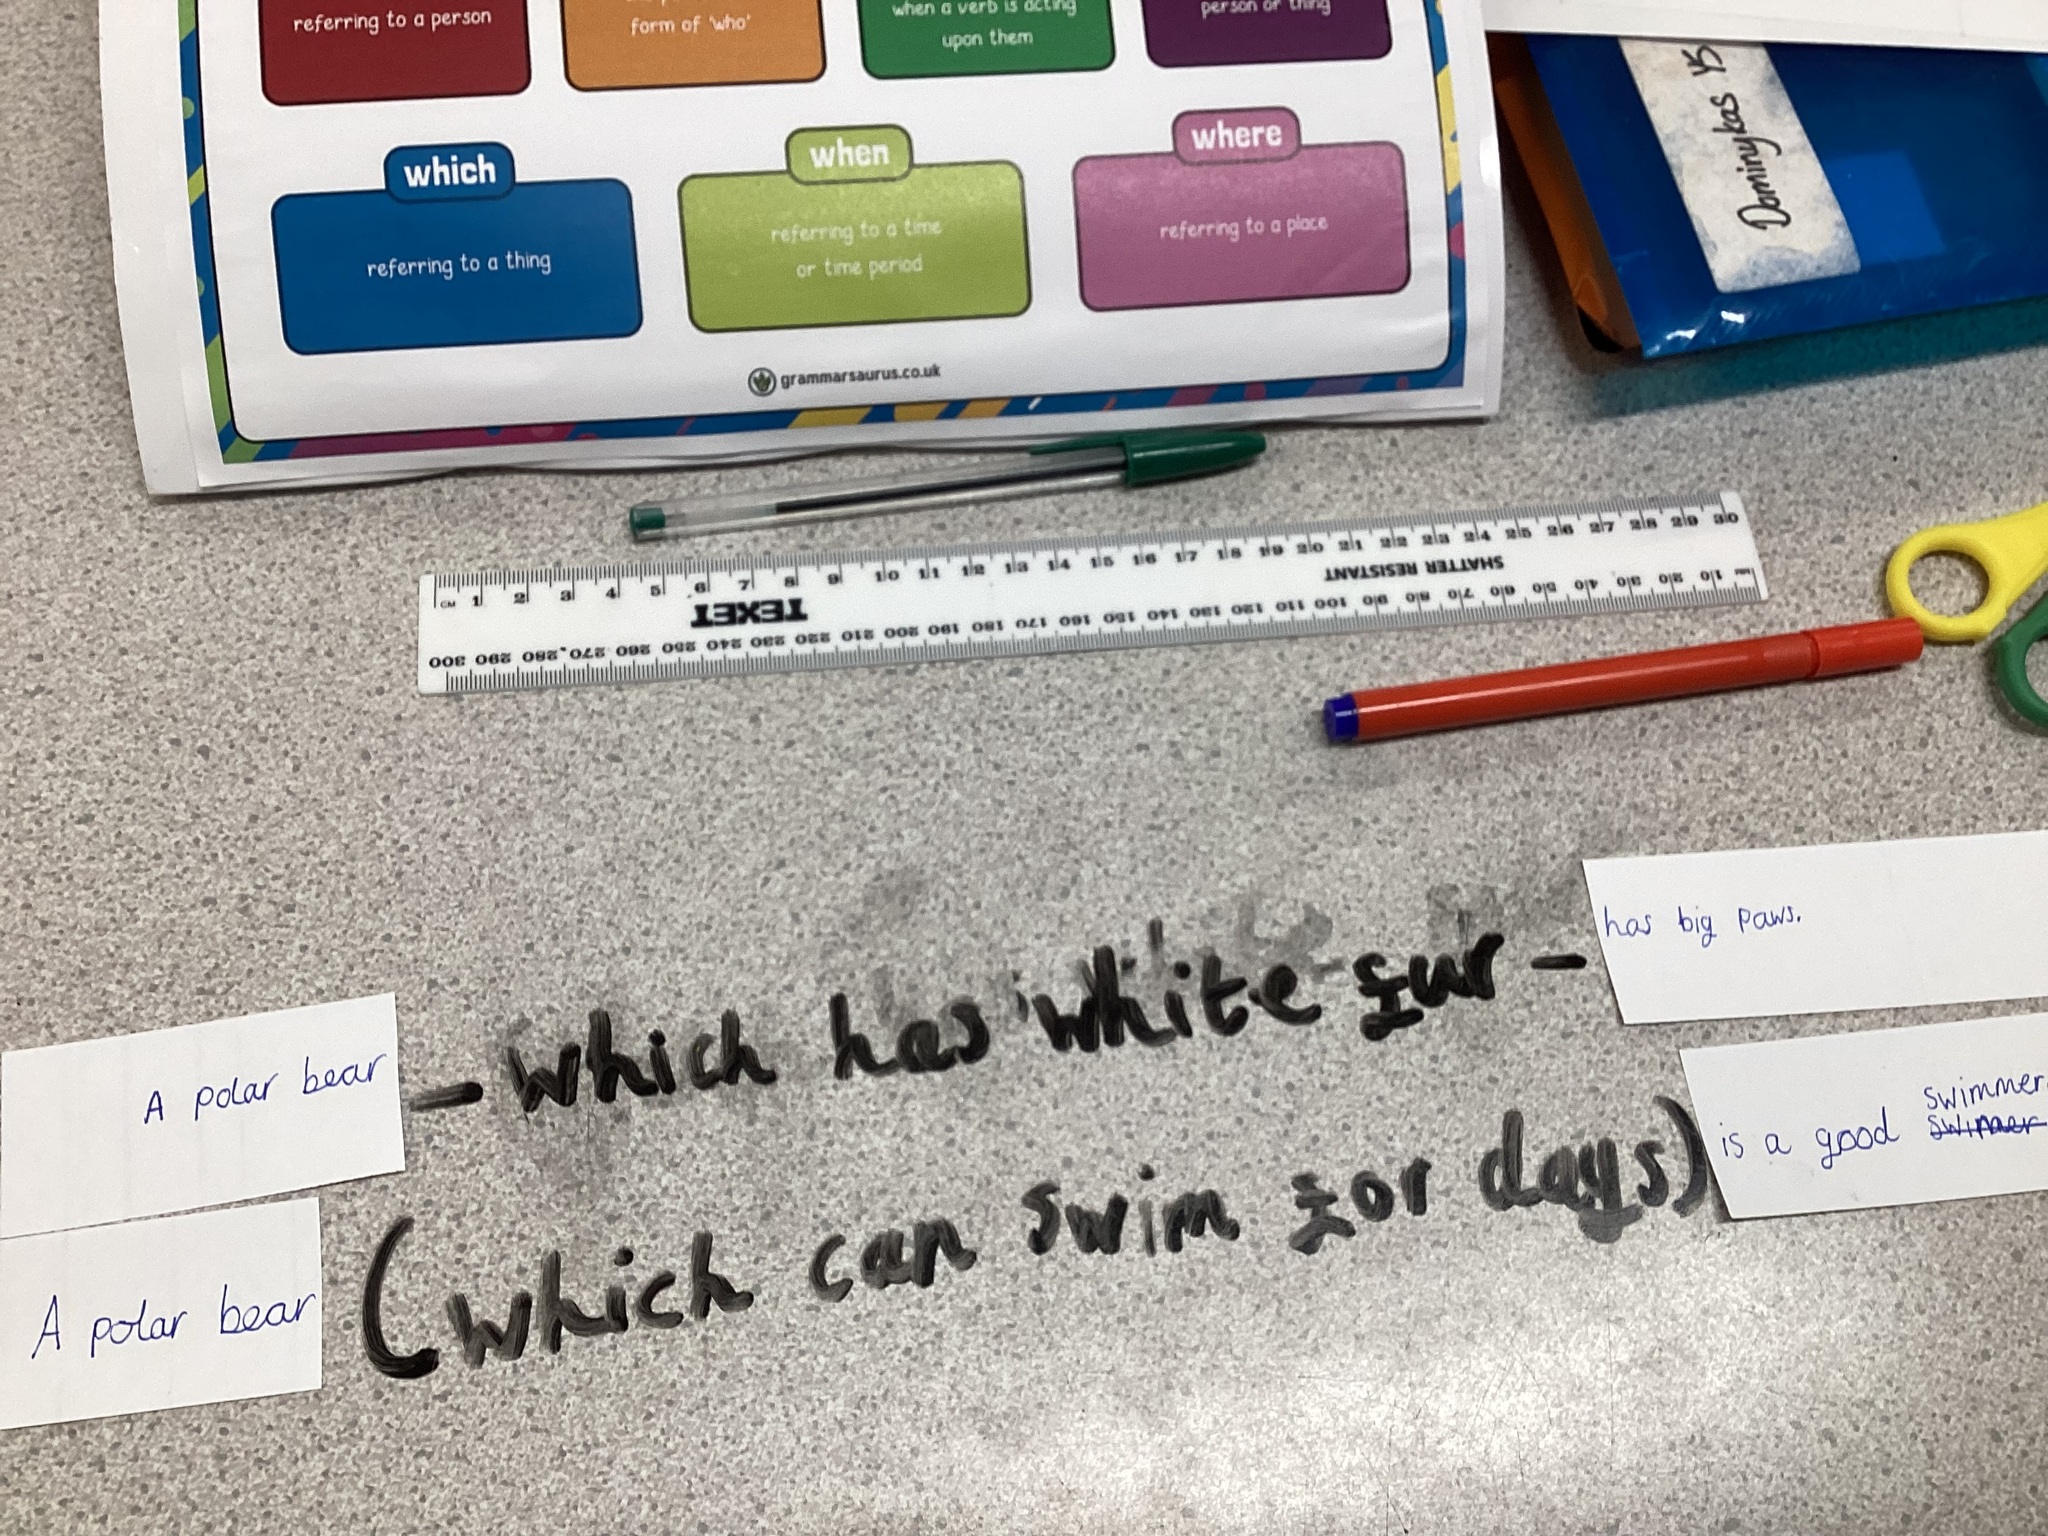 referring to a person
form of 'who'
when a verb is acting
upon them
person or thing
which
referring to a thing
when
referring to a time
or time period
where
referring to a place
grammarsaurus.co.uk
Dominykas Y5
CM 1 2 3 4 5 6 7 8 9 10 11 12 13 14 15 16 17 18 19 20 21 22 23 24 25 26 27 28 29 30
SHATTER RESISTANT
TEXET
300 290 280 270 260 250 240 230 220 210 200 190 180 170 160 150 140 130 120 110 100 90 80 70 60 50 40 30 20 10
A polar bear - which has white fur - has big paws.
A polar bear (which can swim for days) is a good swimmer